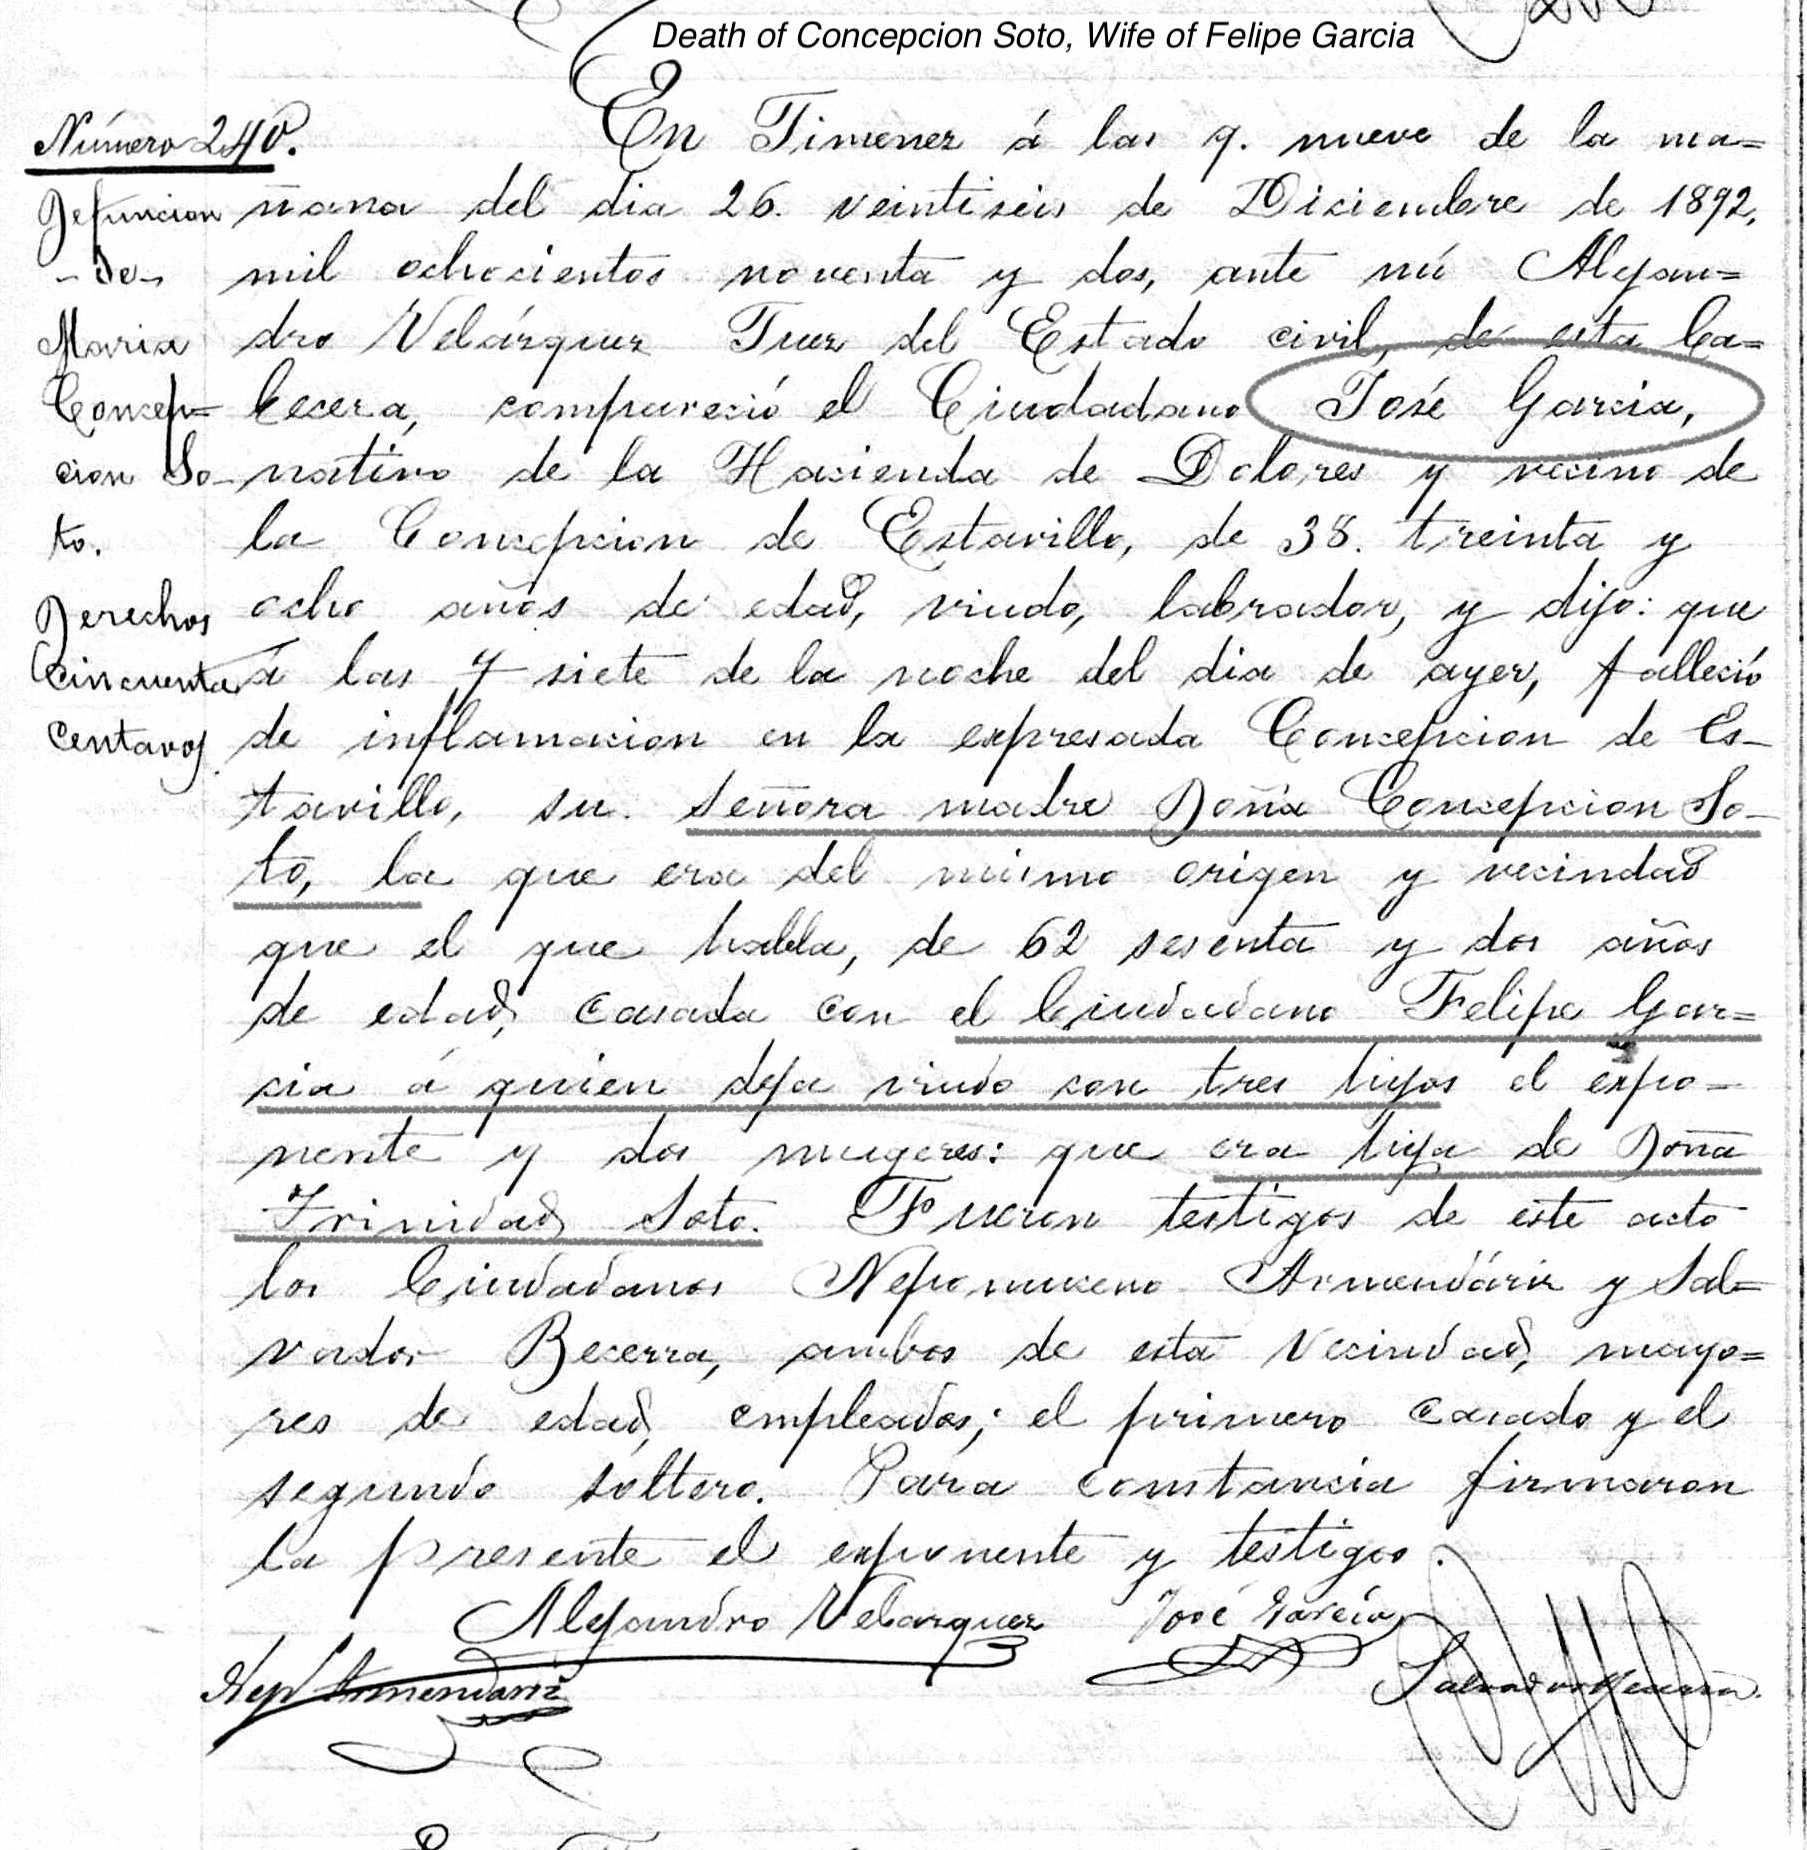 Death of Concepcion Soto, Wife of Felipe Garcia
Número 240.
Defuncion
- de -
Maria
Concep=
cion So-
to.
Derechos
Cincuenta
centavos
En Jimenez á las 9. nueve de la ma=
ñana del dia 26. veintiseis de Diciembre de 1892,
mil ochocientos noventa y dos, ante mí Alejan=
dro Velázquez Juez del Estado civil, de esta Ca=
becera, compareció el Ciudadano José Garcia,
nativo de la Hacienda de Dolores y vecino de
la Concepcion de Estavillo, de 38. treinta y
ocho años de edad, viudo, labrador, y dijo: que
á las 7 siete de la noche del dia de ayer, falleció
de inflamacion en la expresada Concepcion de Es-
tavillo, su señora madre Doña Concepcion So-
to, la que era del mismo origen y vecindad
que el que habla, de 62 sesenta y dos años
de edad, casada con el Ciudadano Felipe Gar=
cia á quien deja viudo con tres hijos el expo-
nente y dos mugeres: que era hija de Doña
Trinidad Soto. Fueron testigos de este acto
los Ciudadanos Nepomuceno Armendáriz y Sal=
vador Becerra, ambos de esta vecindad, mayo=
res de edad, empleados; el primero casado y el
segundo soltero. Para constancia firmaron
la presente el exponente y testigos.
Alejandro Velazquez José García
Nep Armendariz Salvador Becerra